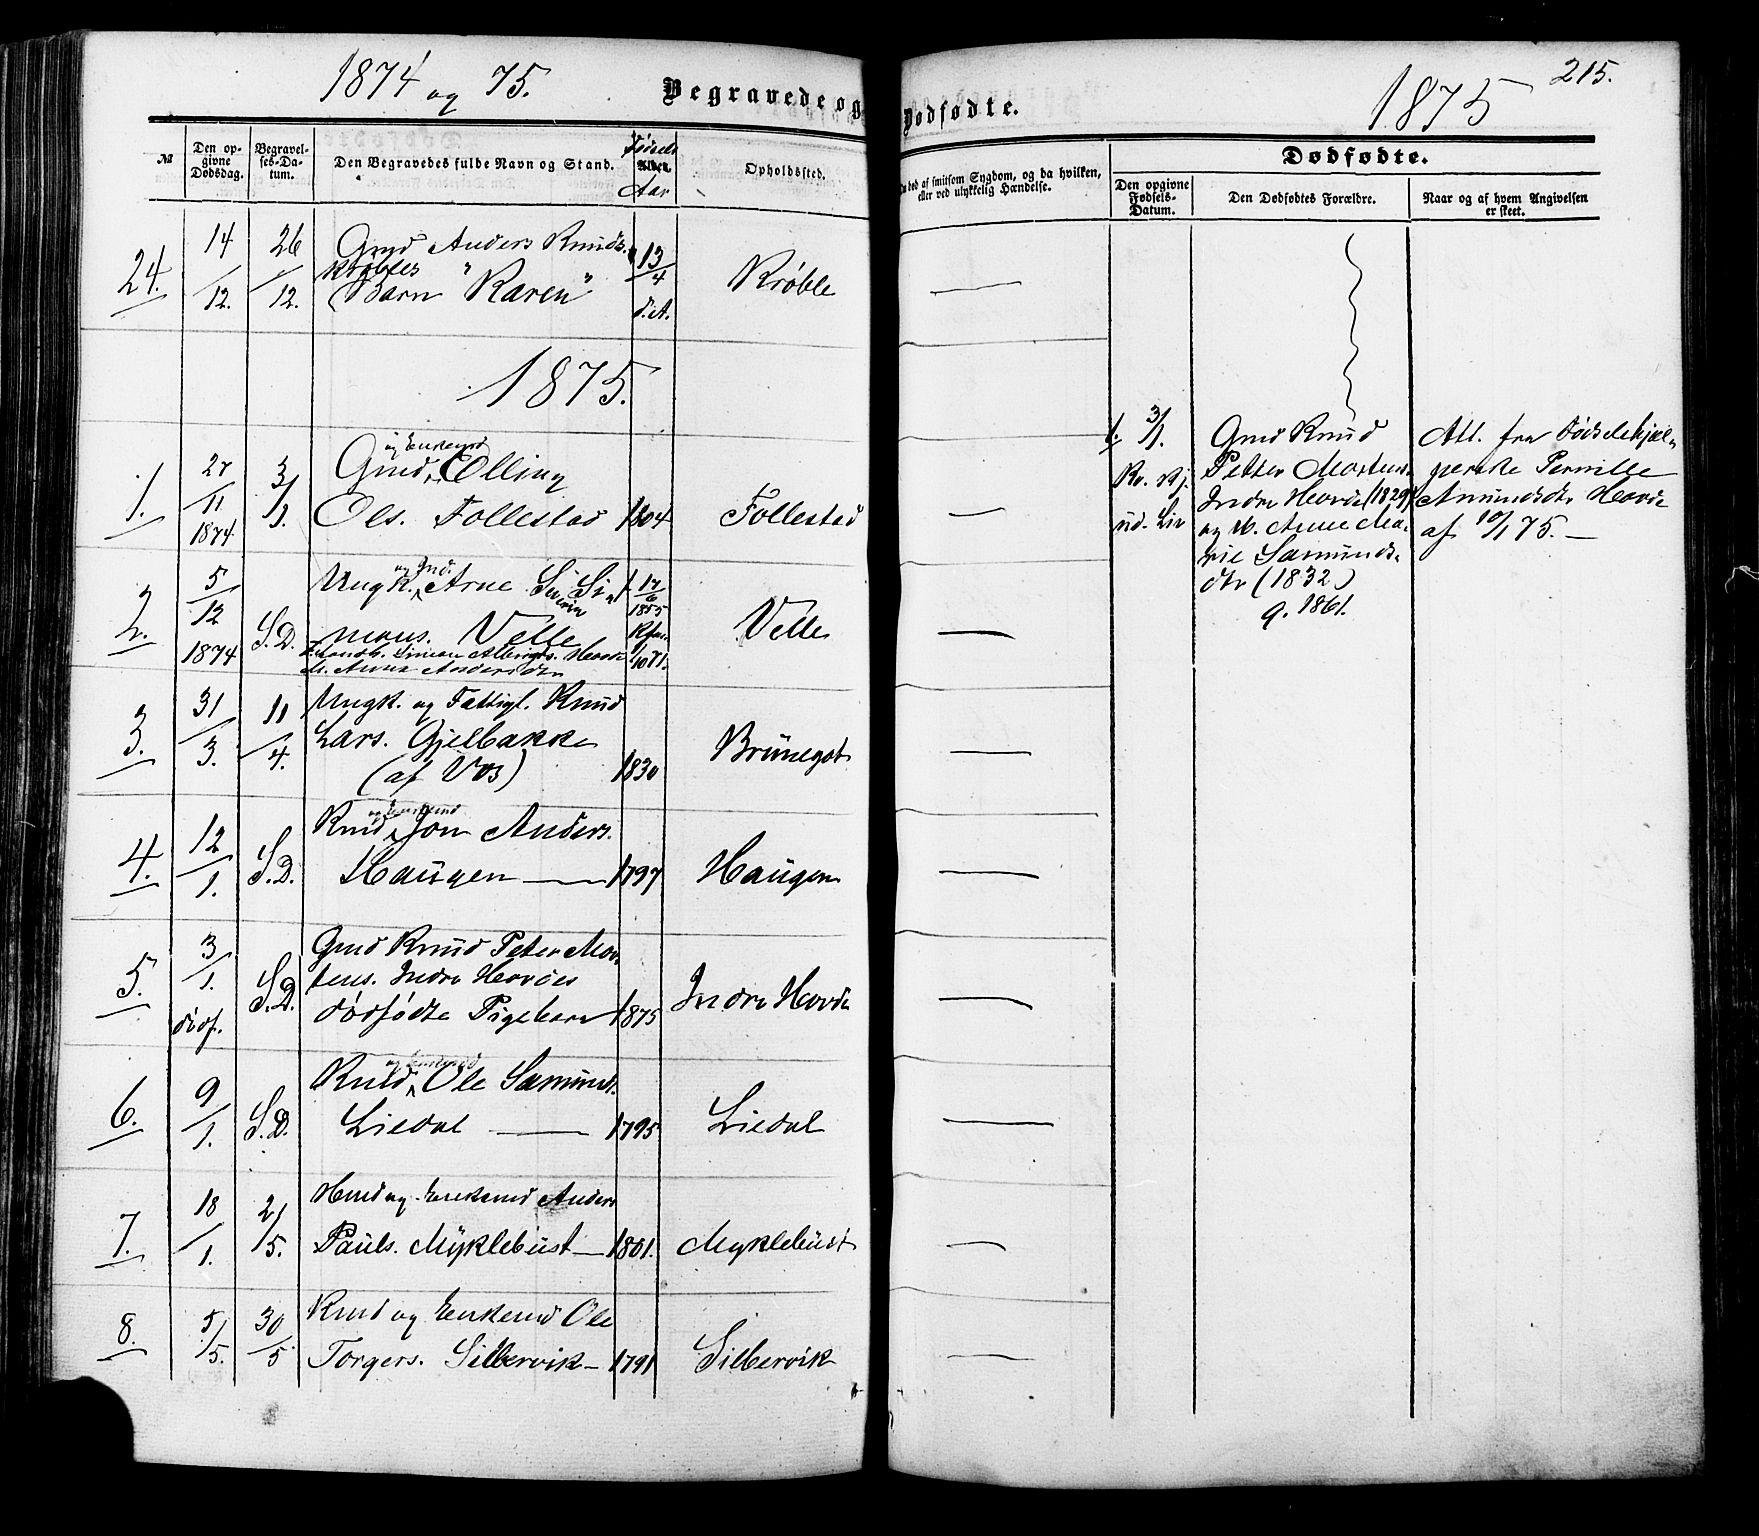 1874 og 75.
Begravede og Dødfødte.
1875
215.
№
Den op-
givne
Dødsdag.
Begravel-
ses-Da-
tum.
Den Begravedes fulde Navn og Stand.
Fødsels
Alder.
Aar
Opholdssted.
død af smitsom Sygdom, og da hvilken,
eller ved ulykkelig Hændelse.
Dødfødte.
Den opgivne
Fødsels-
Datum.
Den Dødfødtes Forældre.
Naar og af hvem Angivelsen
er skeet.
24. 14/12. 26/12. Gmd Anders Knuds.
Krøbles
Barn "Karen" 13/4 d. A. Krøble —
1875.
1. 27/11 1874 3/1. Gmd og Enkemd Elling
Ols. Follestad 1804 Follestad —
2. 5/12 1874 S. D. Ungk. og Ind. Arne Severin Si-
mons. Velle 17/6 1855 Velle —
M. Anna Andersdtr
3. 31/3. 11/4. Ungk. og Fattigl. Knud
Lars. Gjelbakke
(af Vos) 1830 Brünegot —
4. 12/1. S. D. Kmd og Enkemd Jon Anders.
Haugen — 1797 Haugen —
5. 3/1. dødf. S. D. Gmd Knud Peter Mor-
tens. Indre Hovdes
dødfødte Pigebarn 1875 Indre Hovde —
6. 9/1. S. D. Kmd og Enkemd Ole Samunds.
Liedal — 1795 Liedal —
7. 18/1. 2/5. Hmd og Enkemd Anders
Pauls. Myklebust — 1801. Myklebust —
8. 5/5. 30/5 Kmd og Enkemd Ole
Torgers. Silbervik — 1791 Silbervik —
1. 3/1. Gmd Knud
Petter Mortens.
Indre Hovde (1829)
og H. Anne Ma-
rie Samunds-
dtr (1832)
g. 1861.
Kv. Kj.
ud. Liv
Att. fra Fødselshjæl-
perske Pernille
Amundsdtr Hovde
af 10/1 75. —